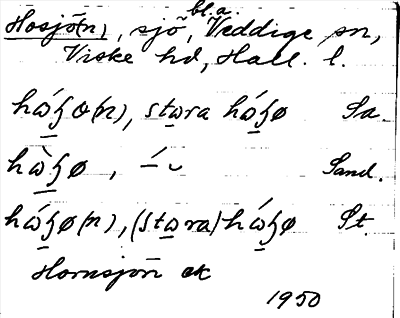 Hosjö(n), sjö, bl.a. Veddige sn,
Viske hd, Hall. l.
hώɧø(n), stωra hώɧø Sa.
hὼɧø, –́ ᴗ Sand.
hώɧø(n), (stωra) hώɧø St.
Hornsjön ek
1950